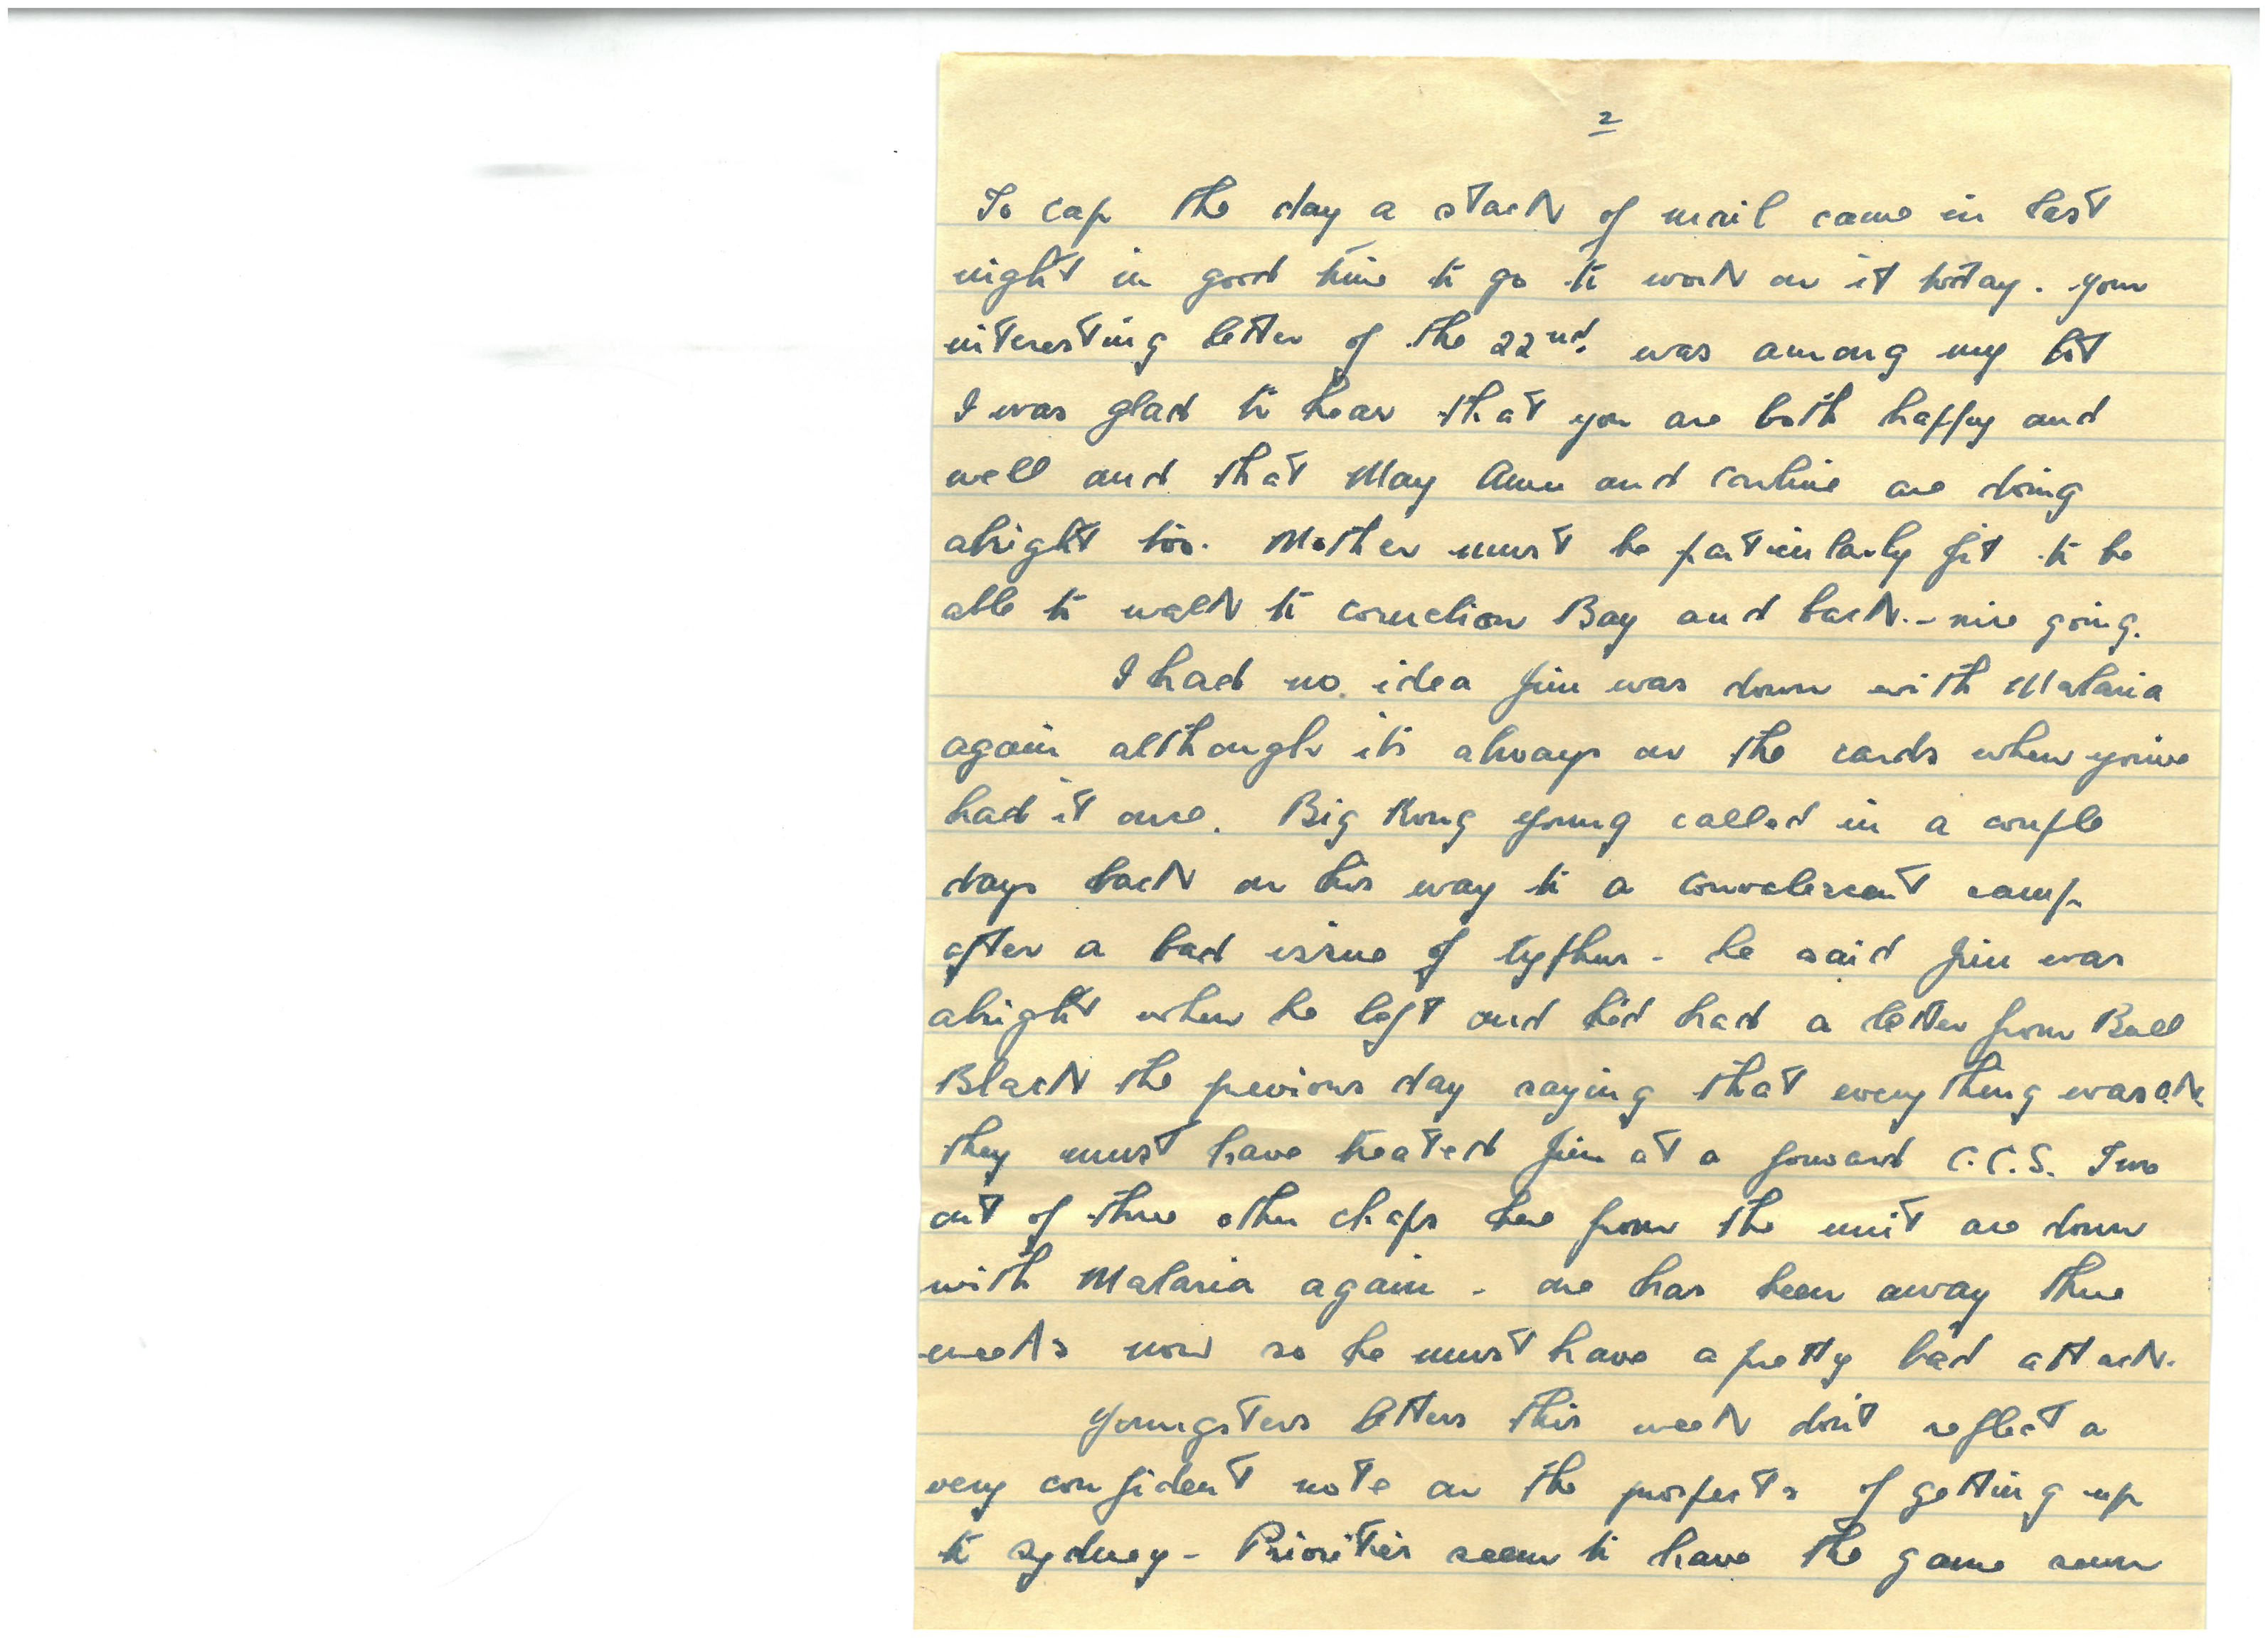 2
To cap the day a stack of mail came in last
night in good time to go to work on it today. Your
interesting letter of the 22nd. was among my lot
I was glad to hear that you are both happy and
well and that May Ann and are doing
alright too. Mother must be particularly fit to be
able to walk to Bay and back. - nice going.
I had no idea Jim was down with Malaria
again although its always on the cards when you've
had it once. Big Kong Young called in a couple
days back on his way to a convalescent camp
after a bad issue of typhus - he said Jim was
alright when he left and he'd had a letter from Bull
Black the previous day saying that everything was O.K.
they must have treated Jim at a forward C.C.S. Two
out of three other chaps here from the unit are down
with Malaria again - one has been away three
weeks now so he must have a pretty bad attack.
Youngsters letters this week don't reflect a
very confident note on the prospects of getting up
to Sydney - Priorities seem to have the game sewn